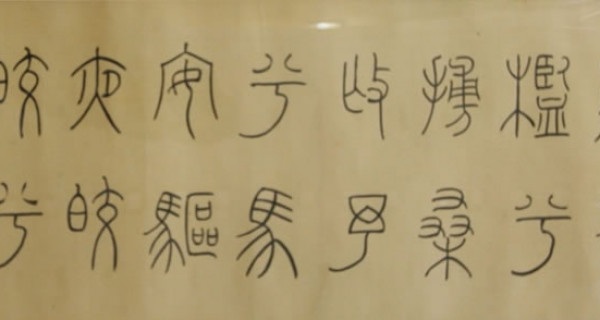 檻兮
扶桑
撫予
兮馬
安驅
夜皎
皎兮